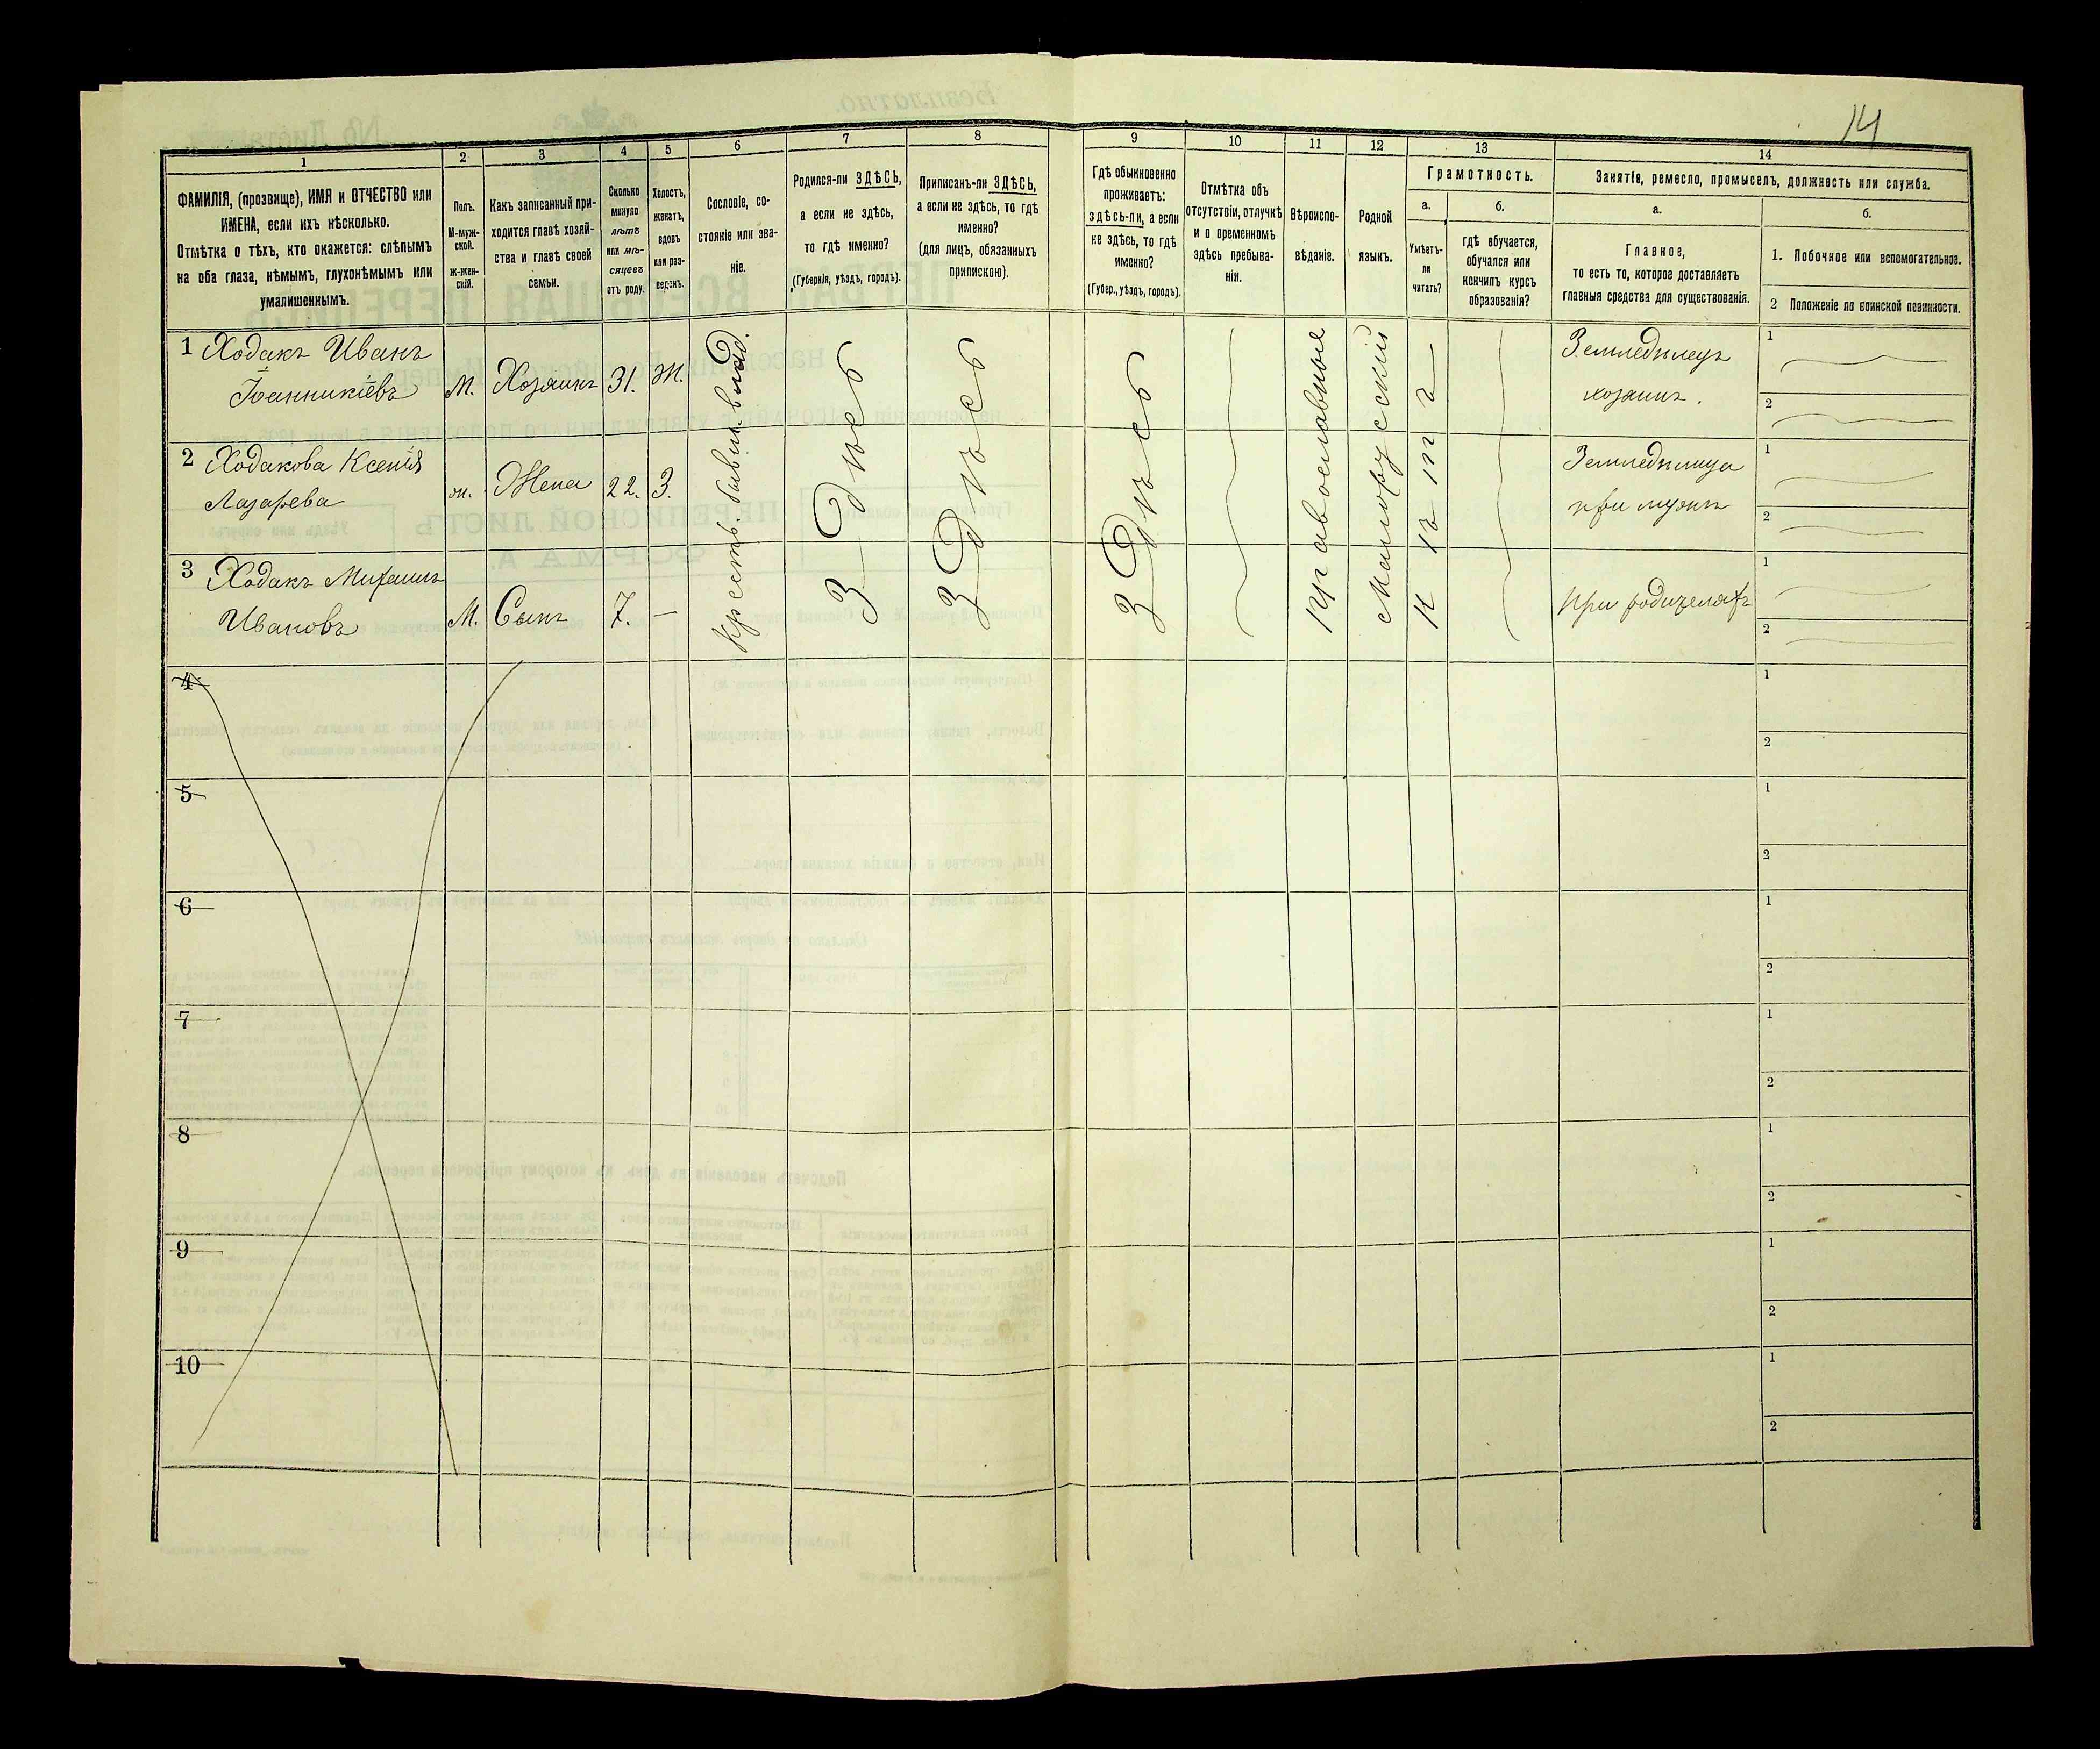 14
1
2
3
4
5
6
7
8
9
10
11
12
13
14
ФАМИЛІЯ, (прозвище), ИМЯ и ОТЧЕСТВО или
ИМЕНА, если ихъ нѣсколько.
Отмѣтка о тѣхъ, кто окажется: слѣпымъ
на оба глаза, нѣмымъ, глухонѣмымъ или
умалишеннымъ.
Полъ.
М-муж-
ской.
ж-жен-
скій.
Какъ записанный при-
ходится главѣ хозяй-
ства и главѣ своей
семьи.
Сколько
минуло
лѣтъ
или мѣ-
сяцевъ
отъ роду.
Холостъ,
женатъ,
вдовъ
или раз-
веденъ.
Сословіе, со-
стояніе или зва-
ніе.
Родился-ли ЗДѢСЬ,
а если не здѣсь,
то гдѣ именно?
(Губернія, уѣздъ, городъ).
Приписанъ-ли ЗДѢСЬ,
а если не здѣсь, то гдѣ
именно?
(для лицъ, обязанныхъ
припискою).
Гдѣ обыкновенно
проживаетъ:
здѣсь-ли, а если
не здѣсь, то гдѣ
именно?
(Губер., уѣздъ, городъ).
Отмѣтка объ
отсутствіи, отлучкѣ
и о временномъ
здѣсь пребыва-
ніи.
Вѣроиспо-
вѣданіе.
Родной
языкъ.
Грамотность.
а.
Умѣетъ-
ли
читать?
б.
гдѣ обучается,
обучался или
кончилъ курсъ
образованія?
Занятіе, ремесло, промыселъ, должность или служба.
а.
Главное,
то есть то, которое доставляетъ
главныя средства для существованія.
б.
1. Побочное или вспомогательное.
2 Положеніе по воинской повинности.
1 Ходакъ Иванъ
Іоанникіевъ
М.
Хозяинъ
31.
Ж.
Крестъ. бывш. влад.
Здѣсь
Здѣсь
Здѣсь
Православные
Малорусскій
Нѣтъ
Земледѣлецъ
хозяинъ.
1
2
2 Ходакова Ксенія
Лазарева
ж.
Жена
22.
З.
Земледѣлица
при мужѣ
1
2
3 Ходакъ Михаилъ
Ивановъ
М.
Сынъ
7.
—
При родителяхъ
1
2
4
1
2
5
1
2
6
1
2
7
1
2
8
1
2
9
1
2
10
1
2